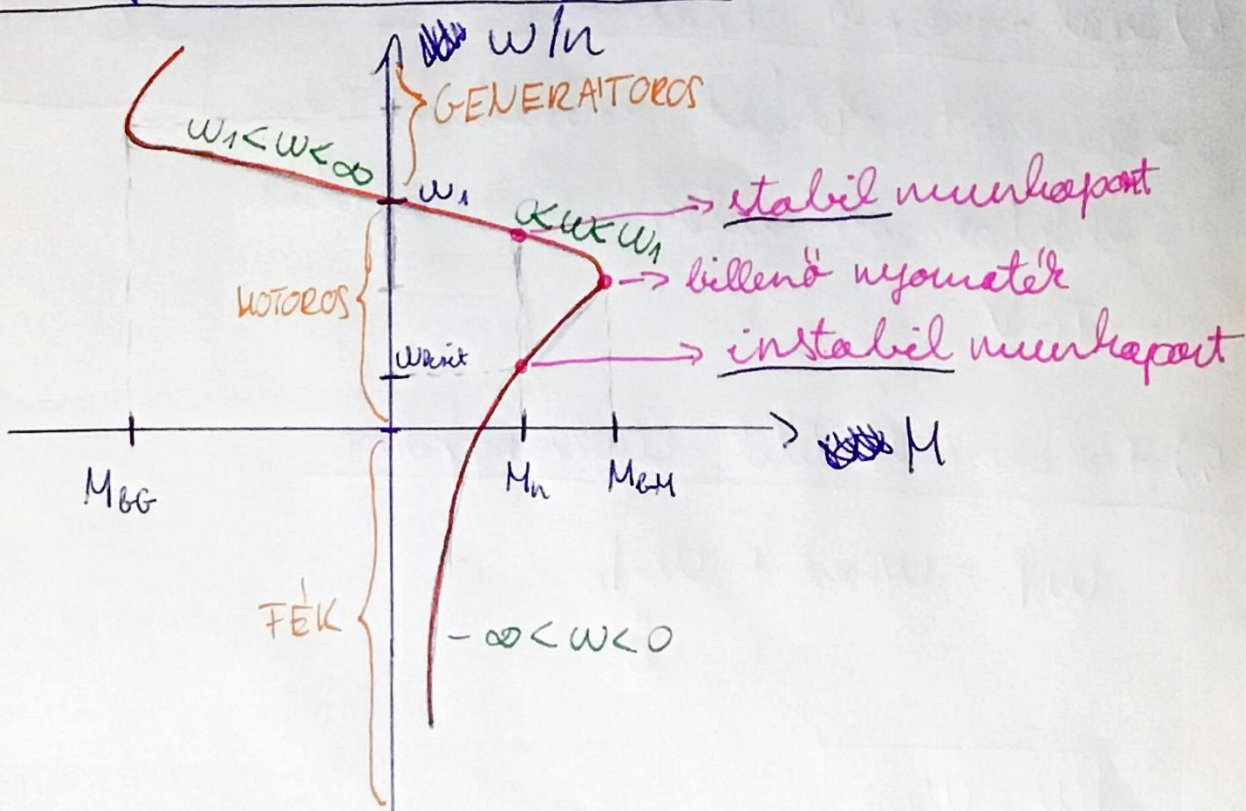 ω/n
GENERÁTOROS
ω₁<ω<∞
ω₁
stabil munkapont
0<ω<ω₁
billenő nyomaték
MOTOROS
ωkrit
instabil munkapont
M
M_BG
M_n
M_BM
FÉK
-∞<ω<0